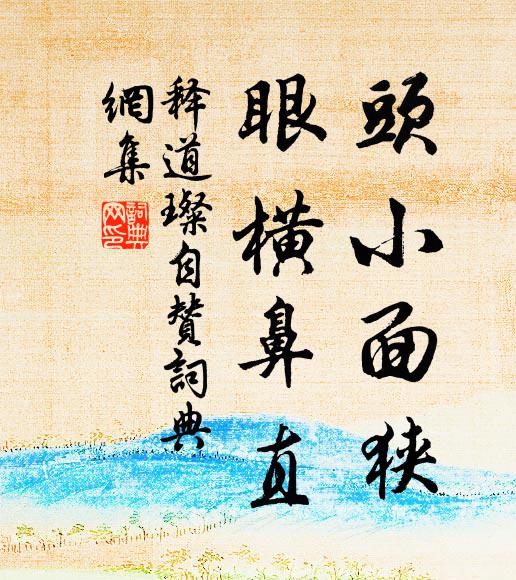 頭小面狹
眼橫鼻直
释道璨自赞詞典
網集
詞典
网印